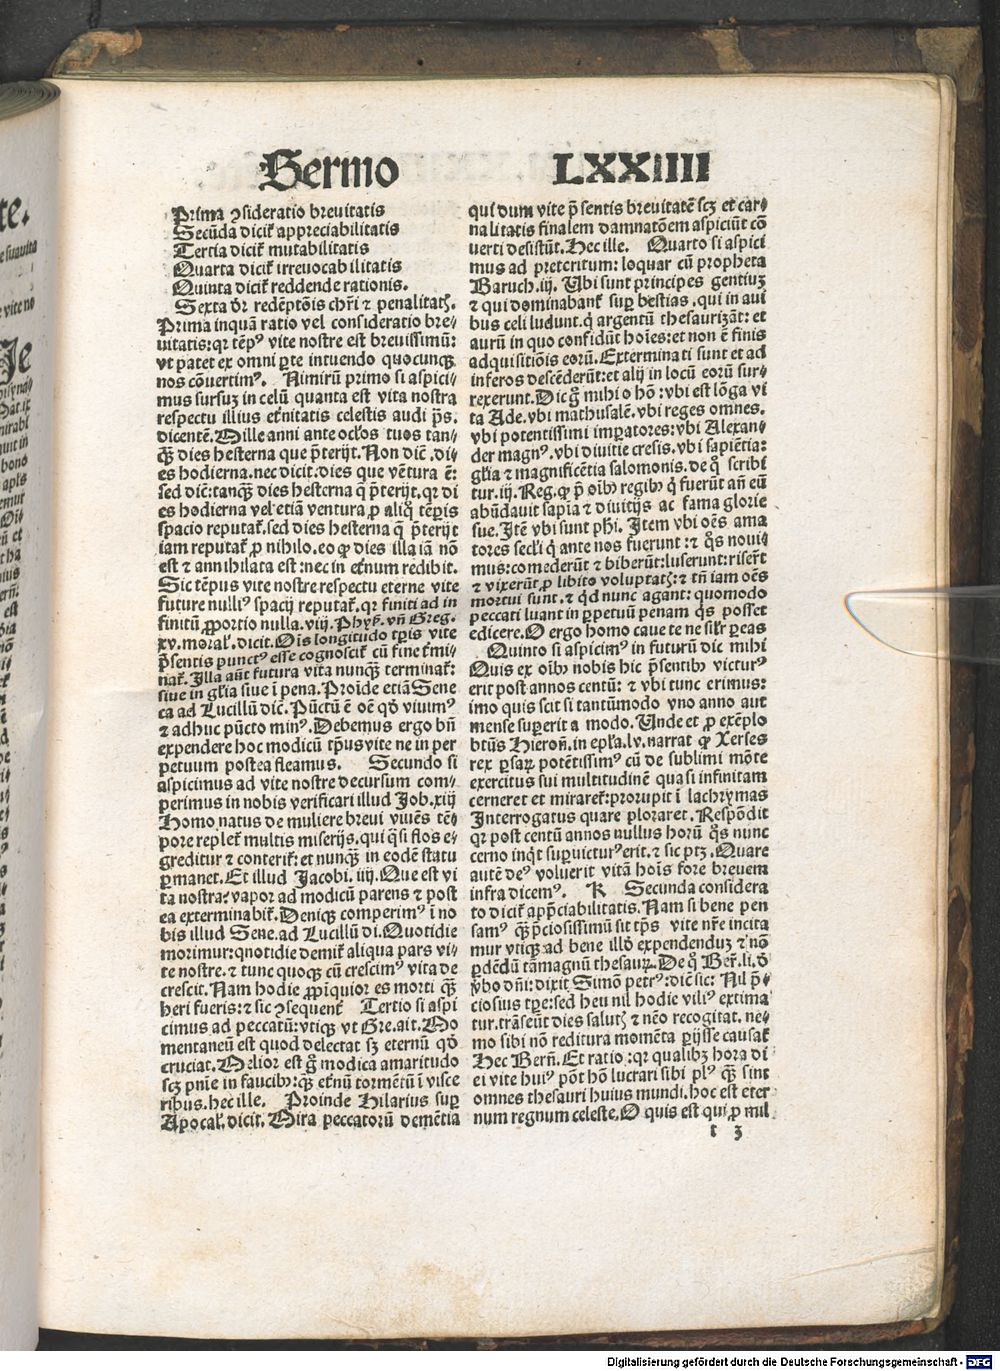 Sermo LXXIIII
Prima ꝯsideratio breuitatis
Secūda dicit᷑ appreciabilitatis
Tertia dicit᷑ mutabilitatis
Quarta dicit᷑ irreuocabilitatis
Quinta dicit᷑ reddende rationis.
Sexta dr̄ redēptōis chr̄i ⁊ penalitatꝭ.
Prima inquā ratio vel consideratio bre⸗
uitatis: qꝛ tēpꝰ vite nostre est breuissimū:
vt patet ex omni ꝑte intuendo quocunqꝫ
nos cōuertimꝰ. Nimirū primo si aspici⸗
mus sursuꝫ in celū quanta est vita nostra
respectu illius et̄nitatis celestis audi p̄s.
dicentē. Mille anni ante ocl̓os tuos tan⸗
qꝫ̄ dies hesterna que p̄terijt. Non diē. di⸗
es hodierna. nec dicit. dies que vētura ē:
sed diē: tanqꝫ̄ dies hesterna q̄ p̄terijt. qꝛ di
es hodierna vel etiā ventura ꝓ aliq̊ tēꝑis
spacio reputat᷑. sed dies hesterna q̄ p̄terijt
iam reputat᷑ ꝓ nihilo. eo ꝙ dies illa iā nō
est ⁊ annihilata est: nec in et̄num redibit.
Sic tēpus vite nostre respectu eterne vite
future nulliꝰ spacij reputat᷑. qꝛ finiti ad in
finitū ꝓportio nulla. viij. Phyꝭ. vn̄ Greg.
xv. moral̓. dicit. Oīs longitudo tꝑis vite
p̄sentis punctꝰ esse cognoscit᷑ cū fine t̓mi⸗
nat᷑. Illa aūt futura vita nunqꝫ̄ terminat᷑:
siue in gl̓ia siue ī pena. Proīde etiā Sene
ca ad Lucillū dic̄. Pūctū ē oē qd̓ viuimꝰ
⁊ adhuc pūcto minꝰ. Debemus ergo bn̄
expendere hoc modicū tp̄us vite ne in per
petuum postea fleamus. Secundo si
aspicimus ad vite nostre decursum com⸗
perimus in nobis verificari illud Job. xiiij
Homo natus de muliere breui viuēs tē⸗
pore replet᷑ multis miserijs. qui q̄si flos e⸗
greditur ⁊ conterit᷑: et nunqꝫ̄ in eodē statu
ꝑmanet. Et illud Jacobi. iiij. Que est vi
ta nostra? vapor ad modicū parens ⁊ post
ea exterminabit᷑. Deniqꝫ comperimꝰ ī no
bis illud Sene. ad Lucillū di. Quotidie
morimur: quotidie demit᷑ aliqua pars vi⸗
te nostre. ⁊ tunc quoqꝫ cū crescimꝰ vita de
crescit. Nam hodie ꝓpīquior es morti qꝫ̄
heri fueris: ⁊ sic ꝯsequent᷑ Tertio si aspi
cimus ad peccatū: vtiqꝫ vt Gre. ait. Mo
mentaneū est quod delectat sꝫ eternū qd̓
cruciat. Melior est g̊ modica amaritudo
scꝫ pnīe in faucibꝰ: qꝫ̄ et̄nū tormētū ī visce
ribus. hec ille. Proinde Hilarius suꝑ
Apocal̓. dicit. Mira peccatorū demētia
qui dum vite p̄sentis breuitatē scꝫ et car⸗
nalitatis finalem damnatōem aspiciūt cō
uerti desistūt. Hec ille. Quarto si aspici
mus ad preteritum: loquar cū propheta
Baruch. iij. Ubi sunt principes gentiuꝫ
⁊ qui dominabant᷑ suꝑ bestias. qui in aui
bus celi ludunt. q̓ argentū thesaurizāt: et
aurū in quo confidūt hoīes: et non ē finis
adquisitiōis eorū. Exterminati sunt et ad
inferos descēderūt: et alij in locū eorū sur⸗
rexerunt. Dic g̊ mihi o hō: vbi est lōga vi
ta Ade. vbi mathusalē. vbi reges omnes.
vbi potentissimi imꝑatores: vbi Alexan⸗
der magnꝰ. vbi diuitie cresis. vbi sapiētia:
gl̓ia ⁊ magnificētia salomonis. de q̊ scribi
tur. iij. Reg. ꝙ p̄ oībꝰ regibꝰ q̓ fuerūt an̄ eū
abūdauit sapīa ⁊ diuitijs ac fama glorie
sue. Itē vbi sunt phī. Item vbi oēs ama
tores secl̓i q̓ ante nos fuerunt: ⁊ q̊s noui⸗
mus: comederūt ⁊ biberūt: luserunt: riserūt
⁊ vixerūt ꝓ libito voluptatꝭ: ⁊ tn̄ iam oēs
mortui sunt. ⁊ qd̓ nunc agant: quomodo
peccati luant in ꝑpetuū penam q̓s posset
edicere. O ergo homo caue te ne sil̓r ꝑeas
Quinto si aspicimꝰ in futurū dic mihi
Quis ex oībꝰ nobis hic p̄sentibꝰ victurꝰ
erit post annos centū: ⁊ vbi tunc erimus:
imo quis scit si tantūmodo vno anno aut
mense suꝑerit a modo. Unde et ꝓ exēplo
btūs Hieron̄. in epl̓a. lv. narrat ꝙ Xerses
rex ꝑsaꝝ potētissimꝰ cū de sublimi mōte
exercitus sui multitudinē quasi infinitam
cerneret et miraret᷑: prorupit ī lachrymas
Interrogatus quare ploraret. Respōdit
qꝛ post centū annos nullus horū q̊s nunc
cerno inq̓t suꝑuicturꝰ erit. ⁊ sic ptꝫ. Quare
autē deꝰ voluerit vitā hoīs fore breuem
infra dicemꝰ. K Secunda considera
tio dicit᷑ app̄ciabilitatis. Nam si bene pen
samꝰ qꝫ̄ p̄ciosissimū sit tp̄s vite nr̄e incita
mur vtiqꝫ ad bene illd̓ expendenduꝫ ⁊ nō
ꝑdēdū tā magnū thesauꝝ. De q̊ Ber̄. li. d̓
v̓bo dn̄i: dixit Simō petrꝰ: diē sic: Nil p̄⸗
ciosius tꝑe: sed heu nil hodie viliꝰ extima
tur. trāseūt dies salutꝭ ⁊ nēo recogitat. ne⸗
mo sibi nō reditura momēta ꝑijsse causat᷑
Hec Bern̄. Et ratio: qꝛ qualibꝫ hora di
ei vite huiꝰ pōt hō lucrari sibi plꝰ qꝫ̄ sint
omnes thesauri huius mundi. hoc est eter
num regnum celeste. O quis est qui ꝓ mil
t 3
Digitalisierung gefördert durch die Deutsche Forschungsgemeinschaft - DFG